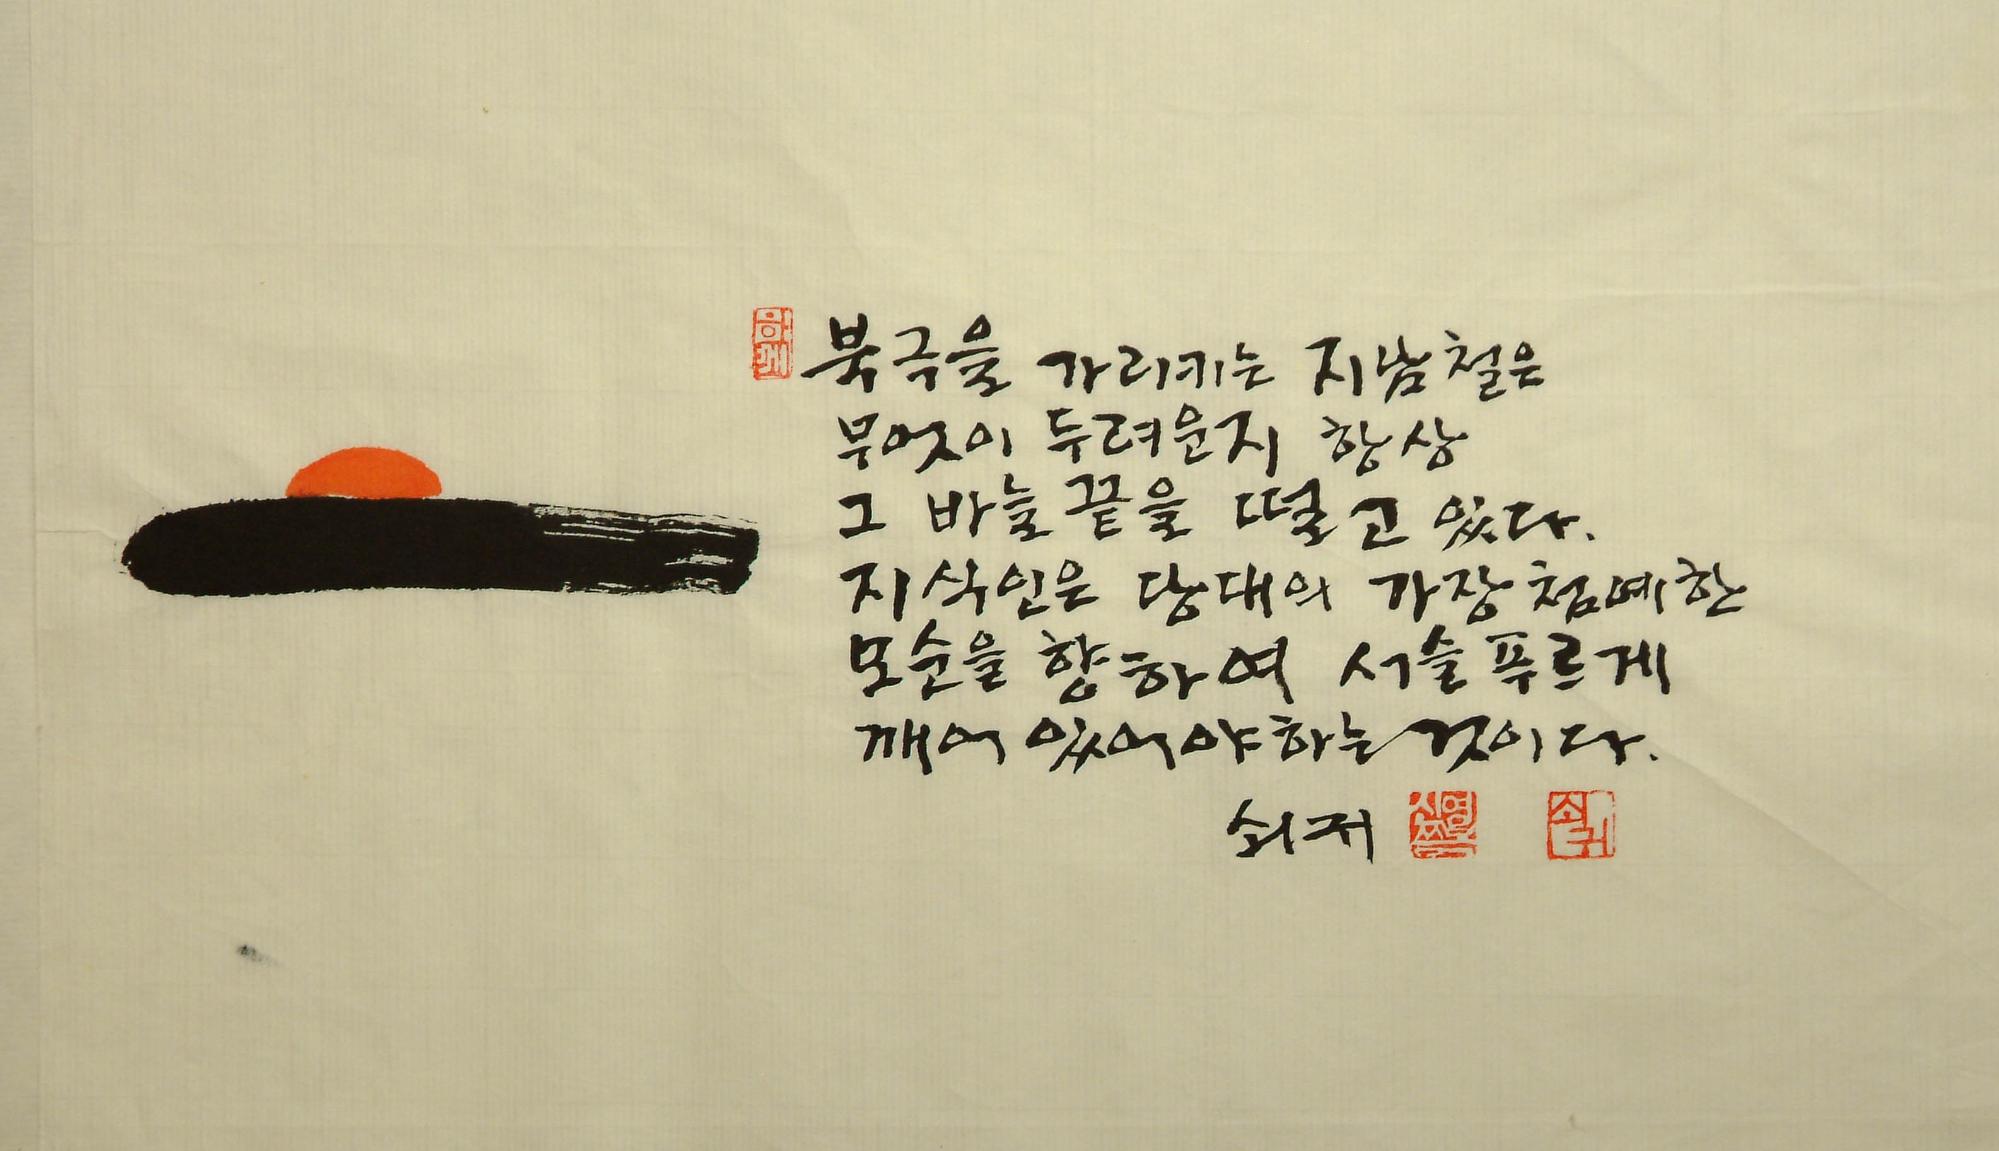 함께
북극을 가리키는 지남철은
무엇이 두려운지 항상
그 바늘 끝을 떨고 있다.
지식인은 당대의 가장 첨예한
모순을 향하여 서슬푸르게
깨어 있어야하는 것이다.
쇠귀
신영복 쇠귀